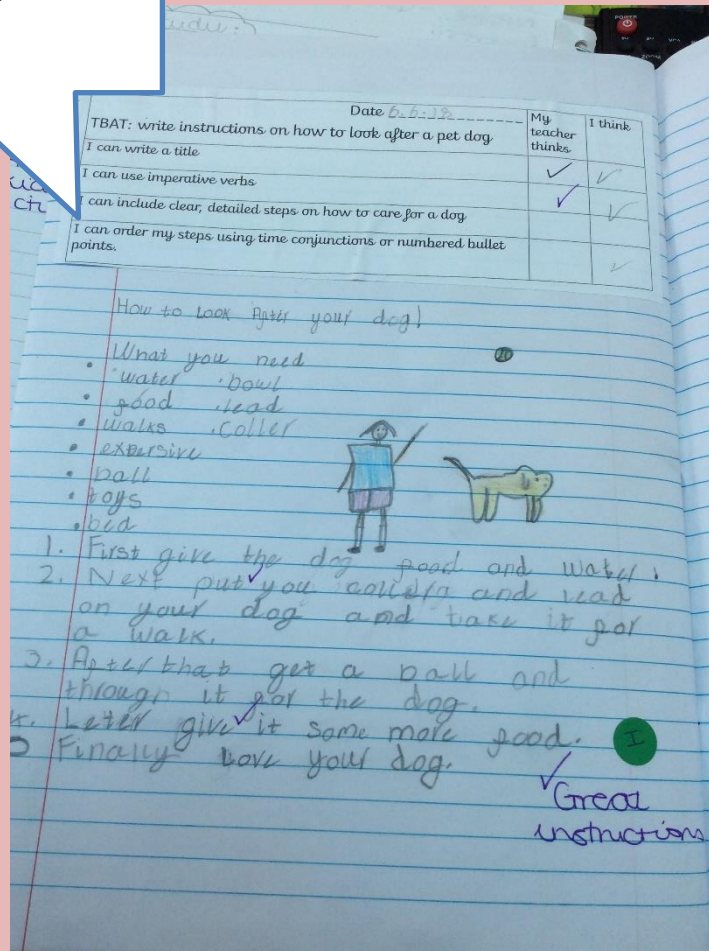 POWER
Date 6.6.18
TBAT: write instructions on how to look after a pet dog
My teacher thinks
I think
I can write a title
I can use imperative verbs
can include clear, detailed steps on how to care for a dog
I can order my steps using time conjunctions or numbered bullet
points.
How to Look After your dog!
What you need
• water • bowl
• food • lead
• walks • coller
• expersive
• ball
• toys
• bed
1. First give the dog food and water.
2. Next put you and lead
on your dog and take it for
a walk.
3. After that get a ball and
through it for the dog.
4. Leter give it some more food.
Finally Love your dog.
I
Great
instructions